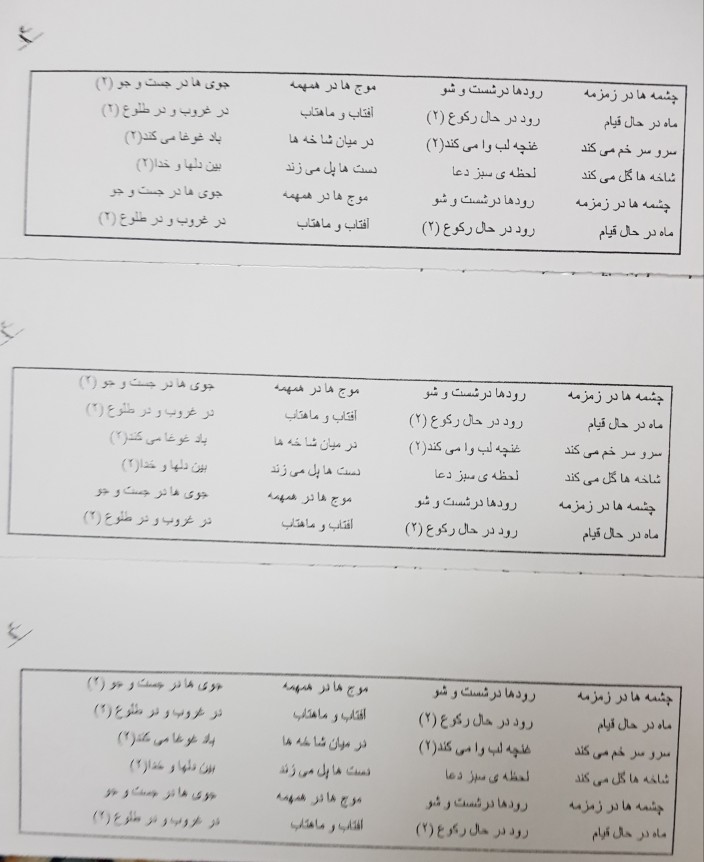 چشمه ها در زمزمه رودها درشست و شو موج ها در همهمه جوی ها در جست و جو (۲)
ماه در حال قیام رود در حال رکوع (۲) آفتاب و ماهتاب در غروب و در طلوع (۲)
سرو سر خم می کند غنچه لب وا می کند(۲) در میان شاخه ها باد غوغا می کند(۲)
شاخه ها گل می کند لحظه ی سبز دعا دست ها پل می زند بین دلها و خدا(۲)
چشمه ها در زمزمه رودها درشست و شو موج ها در همهمه جوی ها در جست و جو
ماه در حال قیام رود در حال رکوع (۲) آفتاب و ماهتاب در غروب و در طلوع (۲)
چشمه ها در زمزمه رودها درشست و شو موج ها در همهمه جوی ها در جست و جو (۲)
ماه در حال قیام رود در حال رکوع (۲) آفتاب و ماهتاب در غروب و در طلوع (۲)
سرو سر خم می کند غنچه لب وا می کند(۲) در میان شاخه ها باد غوغا می کند(۲)
شاخه ها گل می کند لحظه ی سبز دعا دست ها پل می زند بین دلها و خدا(۲)
چشمه ها در زمزمه رودها درشست و شو موج ها در همهمه جوی ها در جست و جو
ماه در حال قیام رود در حال رکوع (۲) آفتاب و ماهتاب در غروب و در طلوع (۲)
چشمه ها در زمزمه رودها درشست و شو موج ها در همهمه جوی ها در جست و جو (۲)
ماه در حال قیام رود در حال رکوع (۲) آفتاب و ماهتاب در غروب و در طلوع (۲)
سرو سر خم می کند غنچه لب وا می کند(۲) در میان شاخه ها باد غوغا می کند(۲)
شاخه ها گل می کند لحظه ی سبز دعا دست ها پل می زند بین دلها و خدا(۲)
چشمه ها در زمزمه رودها درشست و شو موج ها در همهمه جوی ها در جست و جو
ماه در حال قیام رود در حال رکوع (۲) آفتاب و ماهتاب در غروب و در طلوع (۲)